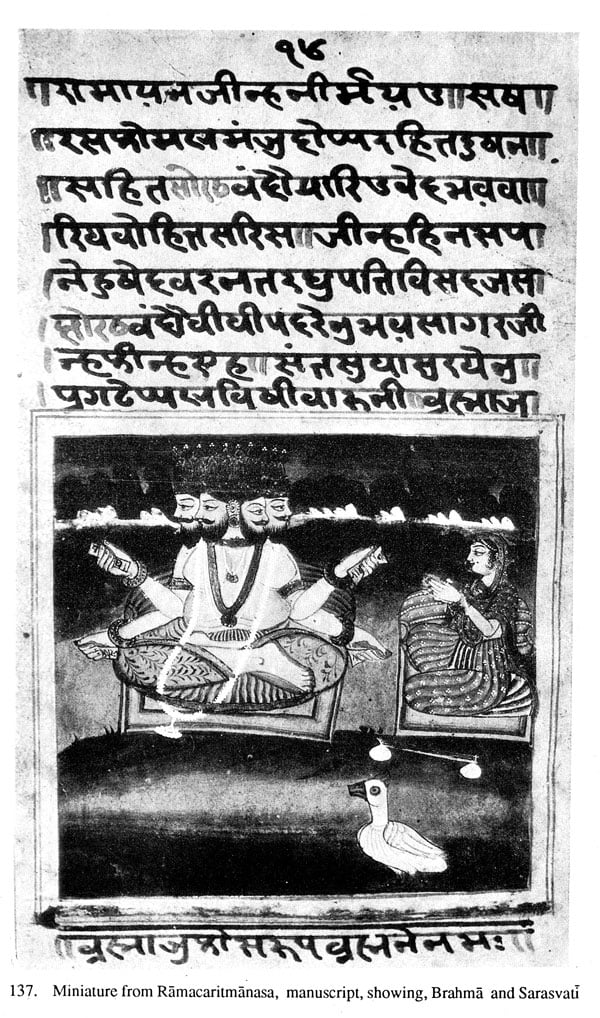 १४
॥रामायनजीन्हनीर्मयउ॥सष॥
॥रसकोमलमंजुदोष्परहितदुषन॥
॥सहित॥सोरठ॥वंदौचारिउवेदभववा॥
॥रिधवोहितसरिस॥जीन्हहिनसप॥
नेहुषेदवरनतरघुपतिविसदजस॥
सोरठवंदौवीधीपदरेनुभवसागरजी
न्हकीन्हएह॥संतसुधाससरधेनु
प्रगटेष्पलविषीवारूनी॥व्रह्माज
॥व्रह्माजुकोसरूपव्रह्मनेनमः॥
137. Miniature from Rāmacaritmānasa, manuscript, showing, Brahmā and Sarasvatī